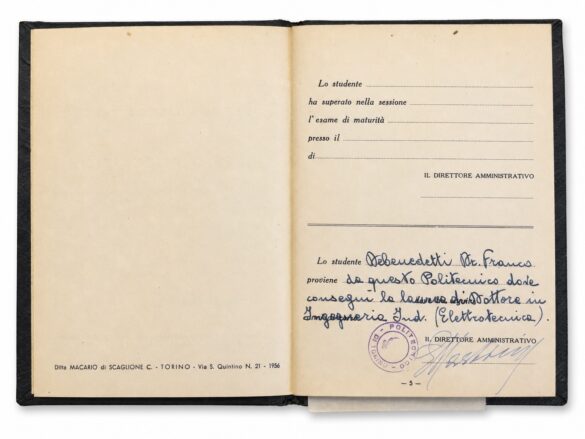 Ditta MACARIO di SCAGLIONE C. - TORINO - Via S. Quintino N. 21 - 1956
Lo studente
ha superato nella sessione
l'esame di maturità
presso il
di
IL DIRETTORE AMMINISTRATIVO
Lo studente Debenedetti Dr. Franco
proviene da questo Politecnico dove
conseguì la laurea di Dottore in
Ingegneria Ind. (Elettrotecnica).
IL DIRETTORE AMMINISTRATIVO
POLITECNICO DI TORINO
— 5 —